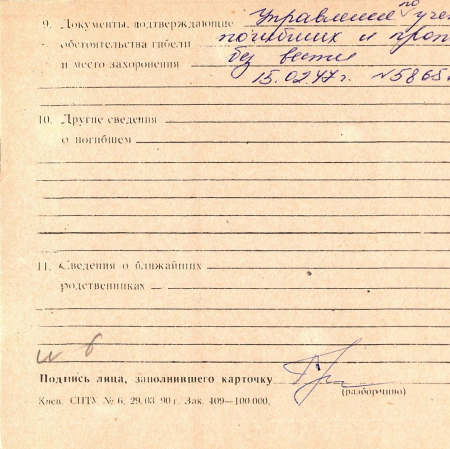 9. Документы, подтверждающие Управление по учет
обстоятельства гибели погибших и проп
и место захоронения без вести
15.02.47 г. №5865
10. Другие сведения
о погибшем
11. Сведения о ближайших
родственниках
Подпись лица, заполнившего карточку
(разборчиво)
Киев. СПТУ № 6. 29.03.90 г. Зак. 409—100 000.